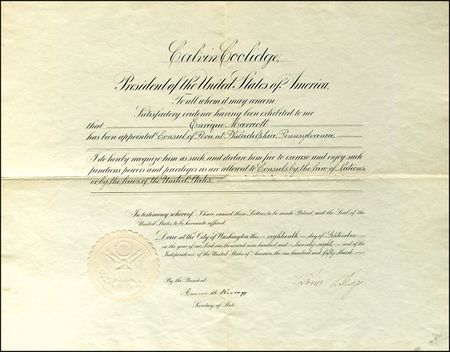 Calvin Coolidge,
President of the United States of America,
To all whom it may concern.
Satisfactory evidence having been exhibited to me
that Enrique
has been appointed Consul of Peru at Philadelphia, Pennsylvania,
I do hereby recognize him as such, and declare him free to exercise and enjoy such
functions, powers and privileges as are allowed to Consuls by the law of Nations,
or by the laws of the United States.
In testimony whereof, I have caused these Letters to be made Patent, and the Seal of the
United States to be hereunto affixed.
Done at the City of Washington this eighteenth day of September
in the year of our Lord one thousand nine hundred and twenty-eight, and of the
Independence of the United States of America, the one hundred and fifty-third.
By the President
Secretary of State.